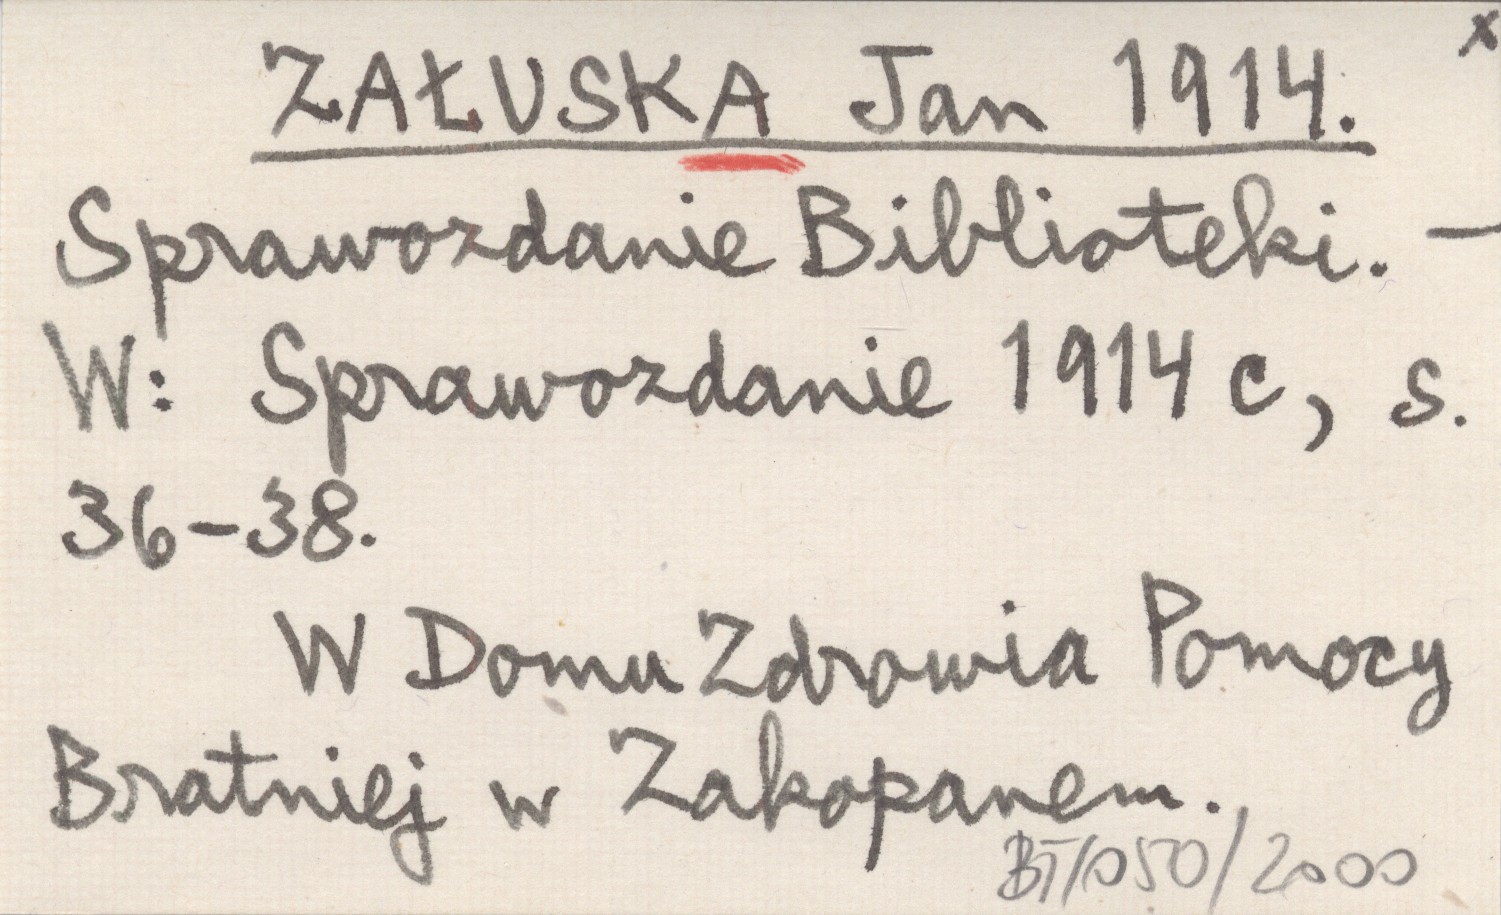 x
ZAŁUSKA Jan 1914.
Sprawozdanie Biblioteki. —
W: Sprawozdanie 1914 c, s.
36-38.
W Domu Zdrowia Pomocy
Bratniej w Zakopanem.
BT/1050/2000